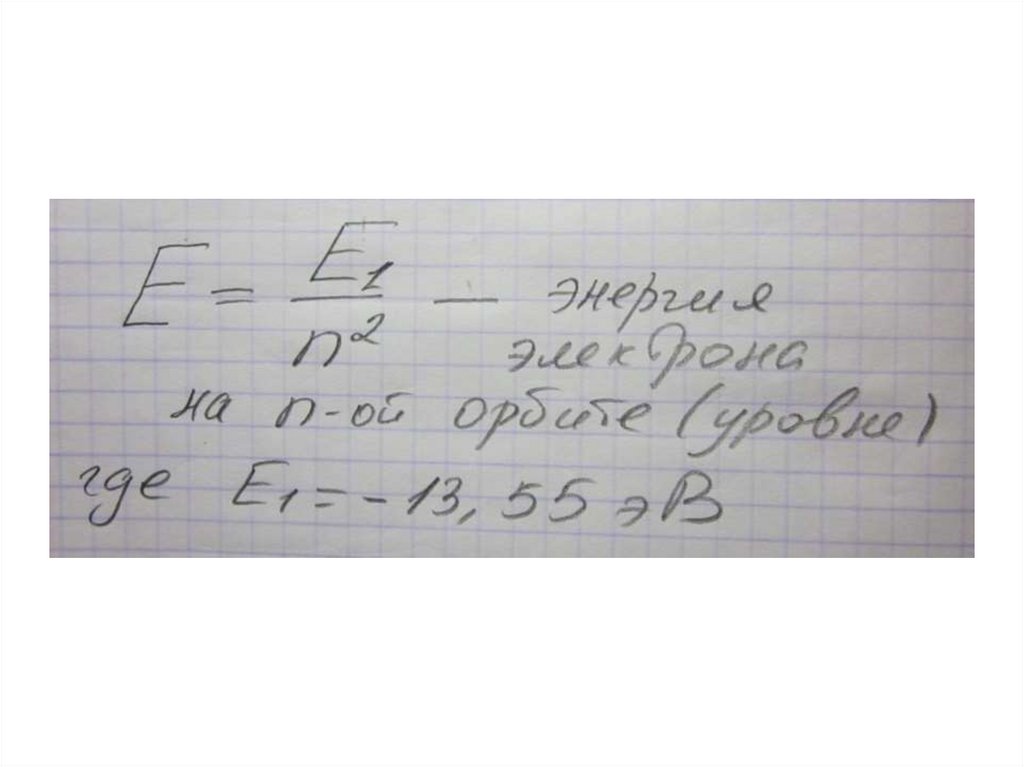 E = E₁/n² — энергия
электрона
на n-ой орбите (уровне)
где E₁ = - 13,55 эВ